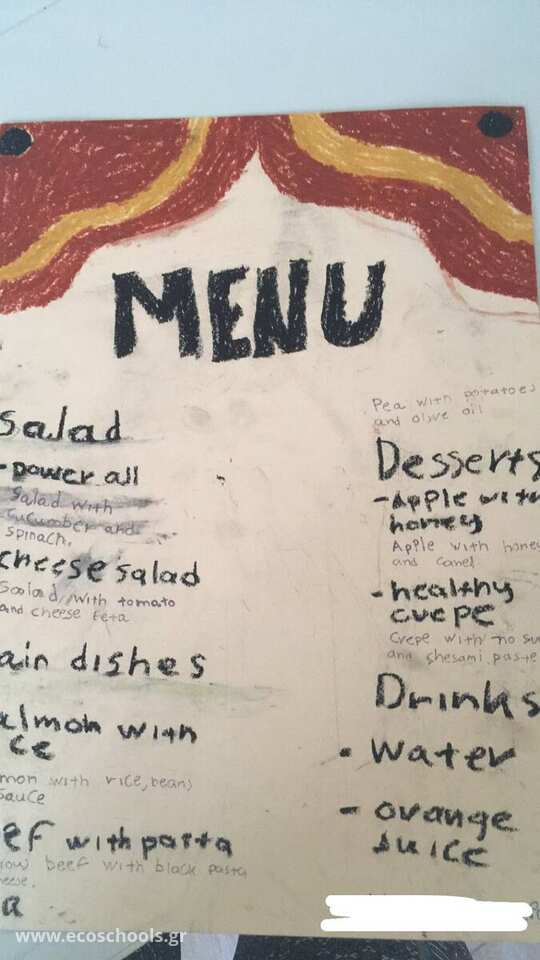 MENU
salad
-power all
salad with
cucumber and
spinach.
cheese salad
Salad with tomato
and cheese feta
ain dishes
almon with
ce
mon with rice, beans
sauce
ef with pasta
ow beef with black pasta
heese.
a
Pea with potatoes
and olive oil
Desserts
-Apple with
honey
Apple with hone
and canel
-healthy
cvepe
Crepe with no su
and shesami paste
Drinks
• Water
- ovange
juice
www.ecoschools.gr